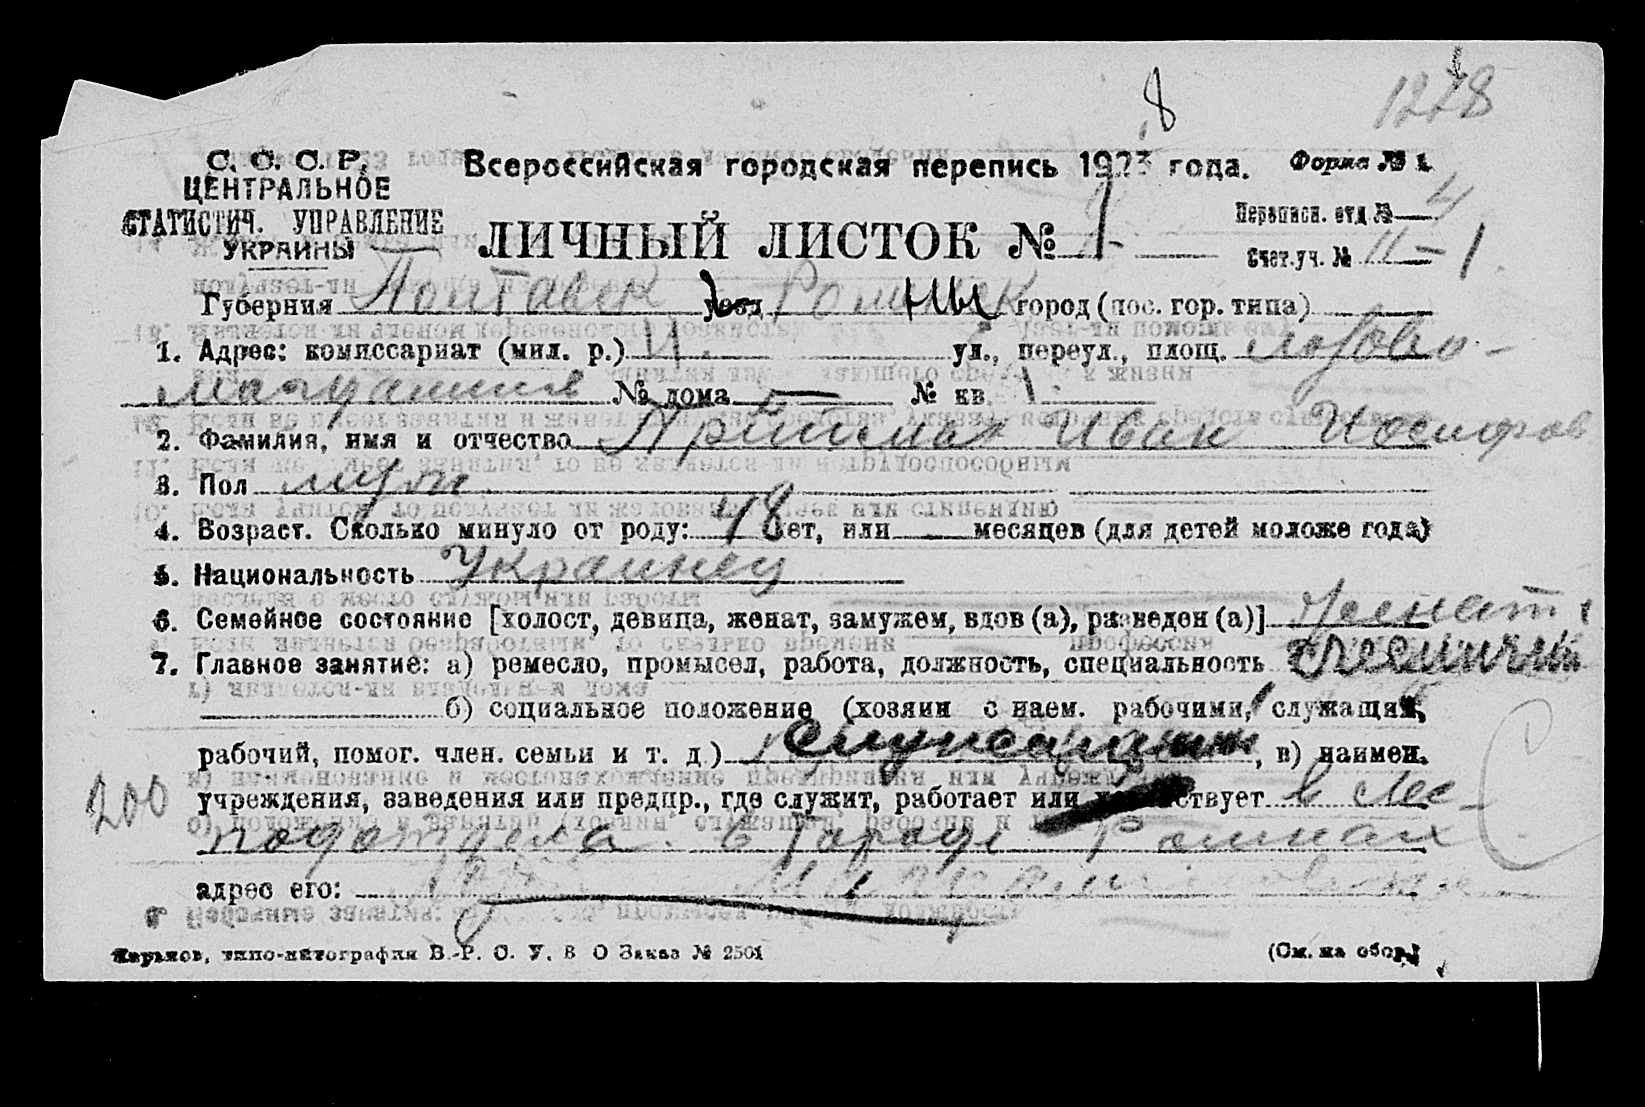 1228
8
С. С. С. Р. Всероссийская городская перепись 1923 года. Форма № 1.
ЦЕНТРАЛЬНОЕ
СТАТИСТИЧ. УПРАВЛЕНИЕ
УКРАИНЫ
ЛИЧНЫЙ ЛИСТОК № 1
Переписн. отд № 4
Счет.уч. № II-1
Губерния Полтавск уезд город (пос. гор. типа)
1. Адрес: комиссариат (мил. р.) ул., переул., площ. Лозово-
№ дома — № кв. 1
2. Фамилия, имя и отчество Прийма Иван Иосифов
3. Пол муж
4. Возраст. Сколько минуло от роду: 48 лет, или месяцев (для детей моложе года)
5. Национальность Украинец
6. Семейное состояние [холост, девица, женат, замужем, вдов (а), разведен (а)] Женат
7. Главное занятие: а) ремесло, промысел, работа, должность, специальность лесничий
б) социальное положение (хозяин с наем. рабочими, служащий,
рабочий, помог. член. семьи и т. д.) служащий, в) наимен.
200
учреждения, заведения или предпр., где служит, работает или ствует в Лес-
подотдела в Городе Ромнах
адрес его:
Харьков, типо-литография В.-Р. С. У. В О Заказ № 2501 (См. на обор.)